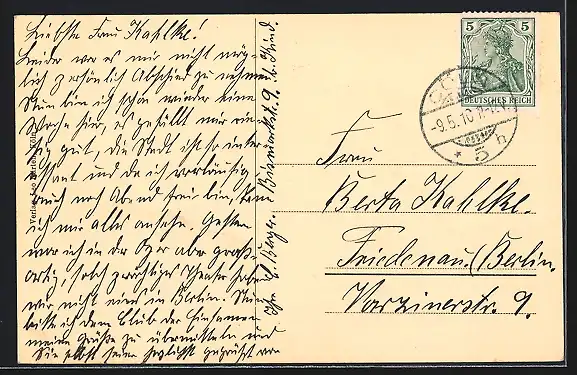 Liebste Frau Kahlke!
Leider war es mir nicht mög-
lich persönlich Abschied zu nehmen
Nun bin ich schon wieder eine
Woche hier, es gefällt mir rie-
sig gut, die Stadt ist so inter-
essant und da ich vorläufig
noch Abend frei bin, kann
ich mir alles ansehn. Gestern
war ich in der Oper aber groß-
artig, solch prächtiges Theater haben
wir nicht mehr in Berlin. Nun
bitte ich dem Club der Einsamen
meine Grüße zu übermitteln und
Sie selbst seien herzlichst gegrüßt von
Ihr
Bismarckstr. 9. b. Kind.
Verlag
5
5
DEUTSCHES REICH
-9.5.10
* 5 n
Frau
Berta Kahlke.
Friedenau./Berlin.
Varzinerstr. 9.